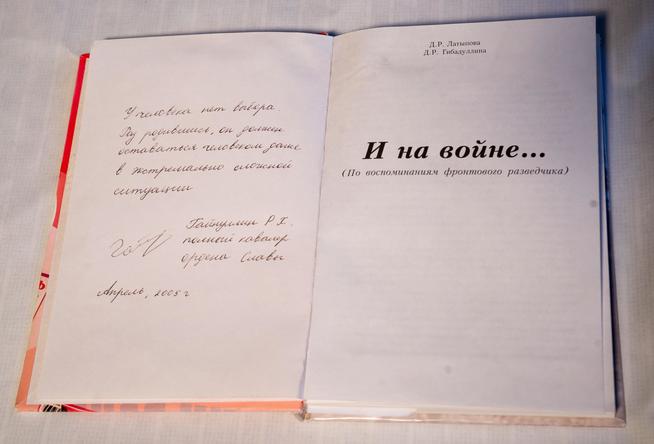 У человека нет выбора.
Раз родившись, он должен
оставаться человеком даже
в экстремально сложной
ситуации
Гайнуллин Р Г.
полный кавалер
ордена Славы
Апрель, 2005 г
Д.Р. Латыпова
Д.Р. Гибадуллина
И на войне...
(По воспоминаниям фронтового разведчика)